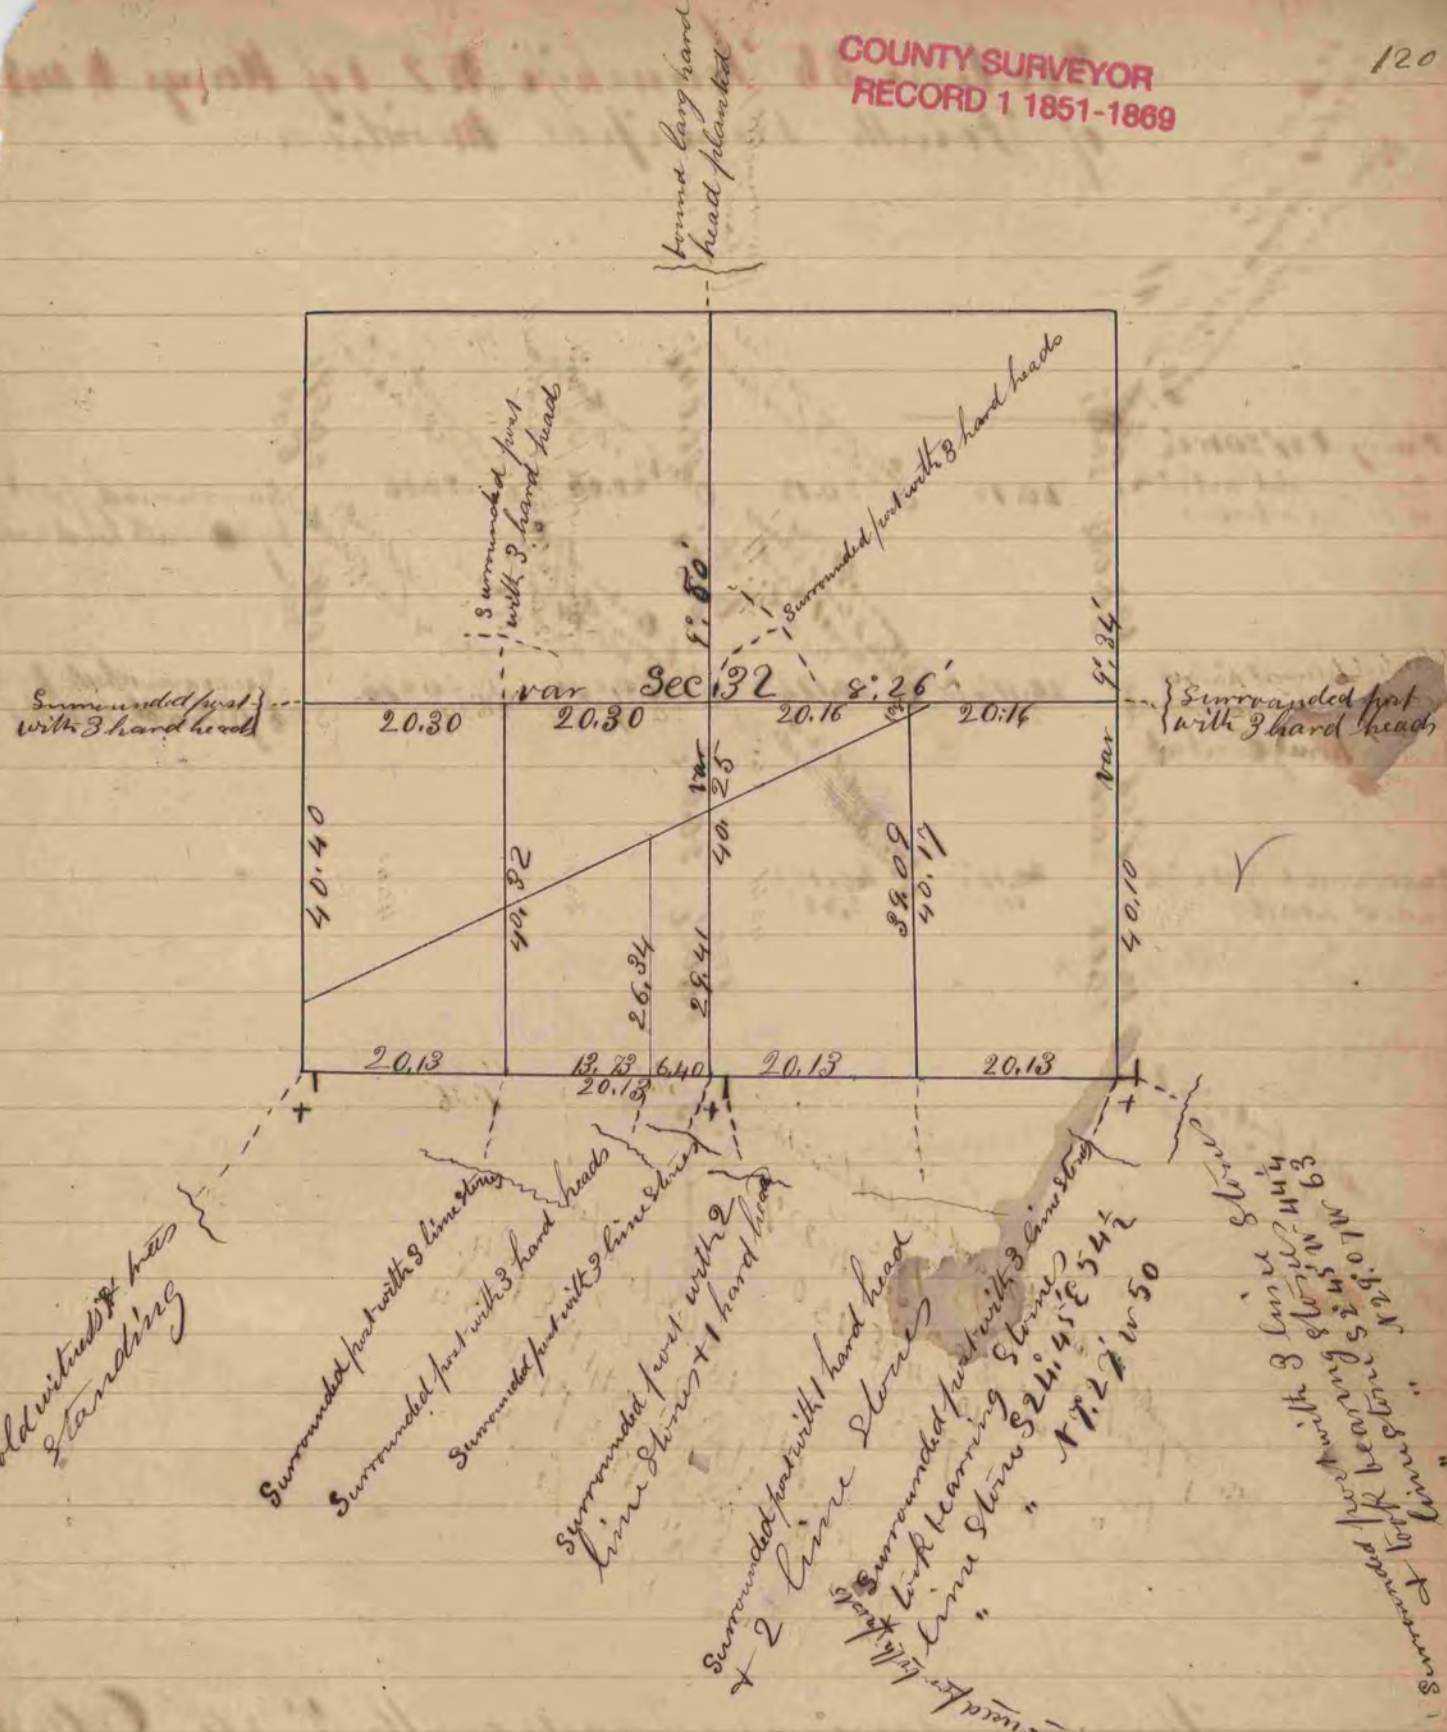 120
COUNTY SURVEYOR
RECORD 1 1851-1869
found larg hard
head planted
Surrounded post
with 3 hard heads
Surrounded post with 3 hard heads
9° 50'
9° 34'
var
Sec 32
8° 26'
Surrounded post
with 3 hard heads
20.30
20.30
20.16
20.16
Surrounded post
with 3 hard heads
var
var
40.40
40.32
40.25
39.09
40.17
40.10
26.34
29.41
20.13
13.73
6.40
20.13
20.13
20.13
old witness trees
standing
Surrounded post with 3 lime stones
Surrounded post with 3 hard heads
Surrounded post with 3 lime stones
Surrounded post with 2
lime stones + 1 hard head
Surrounded post with 1 hard head
+ 2 lime stones
Surrounded post with 3 lime stones
+ took bearring stones
lime stone S 24° 45' E 54½
" " 27' W 50
Surrounded post with 3 lime stones
+ took bearing stones
lime stone S 2° 45' W 44¼
" " N 29° 07 W 63